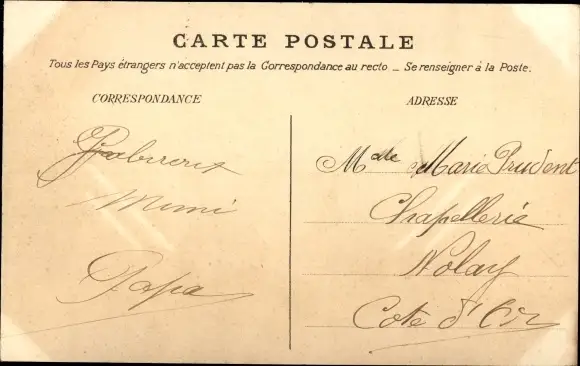 CARTE POSTALE
Tous les Pays étrangers n'acceptent pas la Correspondance au recto _ Se renseigner à la Poste.
CORRESPONDANCE
Mimi
Papa
ADRESSE
Mdlle Maria Prudent
Chapellerie
Nolay
Cote d'Or